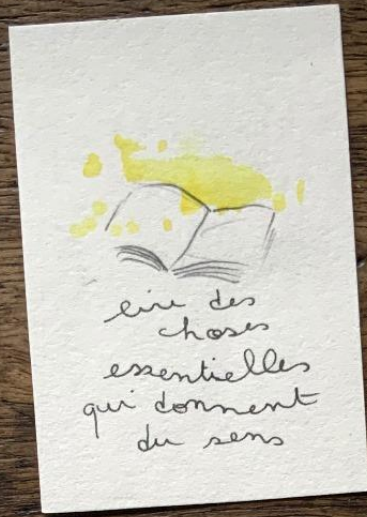 lire des
choses
essentielles
qui donnent
du sens